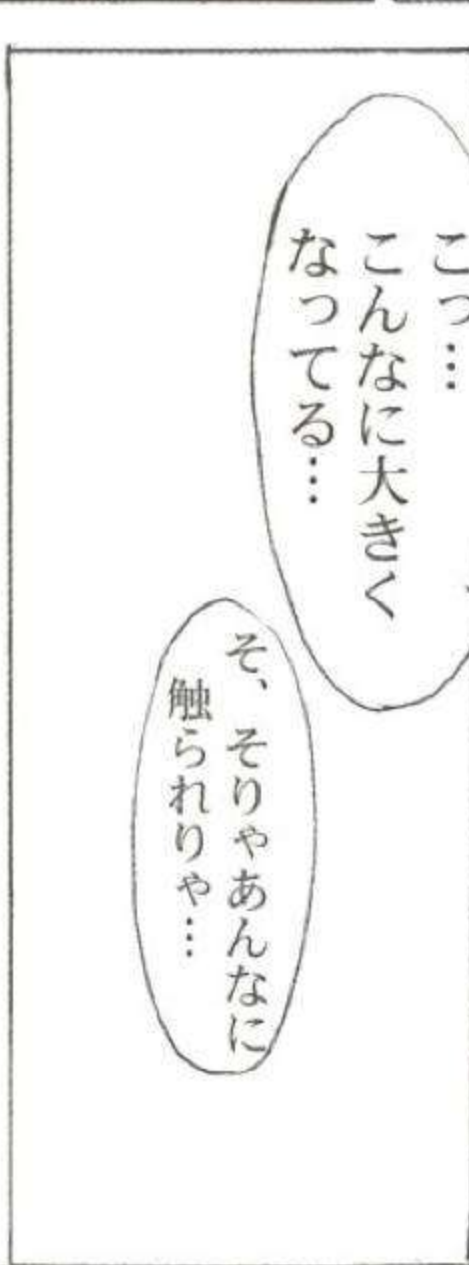 こっ…
こんなに大きく
なってる…
そ、そりゃあんなに
触られりゃ…